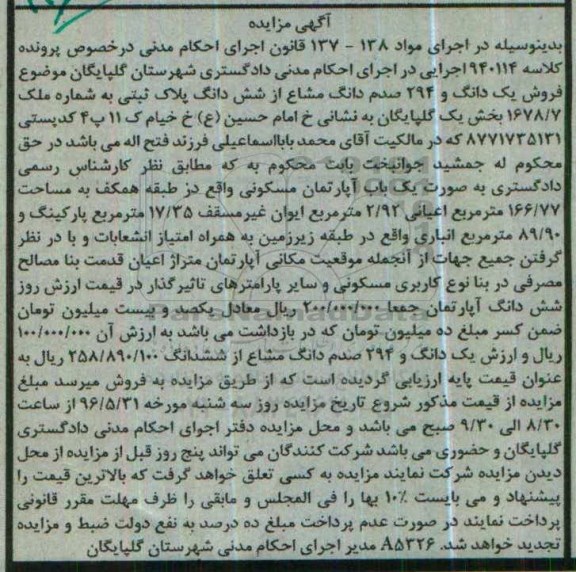 آگهی مزایده
بدینوسیله در اجرای مواد ۱۳۸ - ۱۳۷ قانون اجرای احکام مدنی درخصوص پرونده
کلاسه ۹۴۰۱۱۴ اجرایی در اجرای احکام مدنی دادگستری شهرستان گلپایگان موضوع
فروش یک دانگ و ۲۹۴ صدم دانگ مشاع از شش دانگ پلاک ثبتی به شماره ملک
۱۶۷۸/۷ بخش یک گلپایگان به نشانی خ امام حسین (ع) خ خیام ک ۱۱ پ۴ کدپستی
۸۷۷۱۷۳۵۱۳۱ که در مالکیت آقای محمد بابااسماعیلی فرزند فتح اله می باشد در حق
محکوم له جمشید جوانبخت بابت محکوم به که مطابق نظر کارشناس رسمی
دادگستری به صورت یک باب آپارتمان مسکونی واقع در طبقه همکف به مساحت
۱۶۶/۷۷ مترمربع اعیانی ۲/۹۲ مترمربع ایوان غیرمسقف ۱۷/۳۵ مترمربع پارکینگ و
۸۹/۹۰ مترمربع انباری واقع در طبقه زیرزمین به همراه امتیاز انشعابات و با در نظر
گرفتن جمیع جهات از آنجمله موقعیت مکانی آپارتمان متراژ اعیان قدمت بنا مصالح
مصرفی در بنا نوع کاربری مسکونی و سایر پارامترهای تاثیرگذار در قیمت ارزش روز
شش دانگ آپارتمان جمعا ۲۰۰/۰۰۰/۰۰۰ ریال معادل یکصد و بیست میلیون تومان
ضمن کسر مبلغ ده میلیون تومان که در بازداشت می باشد به ارزش آن ۱۰۰/۰۰۰/۰۰۰
ریال و ارزش یک دانگ و ۲۹۴ صدم دانگ مشاع از ششدانگ ۲۵۸/۸۹۰/۱۰۰ ریال به
عنوان قیمت پایه ارزیابی گردیده است که از طریق مزایده به فروش میرسد مبلغ
مزایده از قیمت مذکور شروع تاریخ مزایده روز سه شنبه مورخه ۹۶/۵/۳۱ از ساعت
۸/۳۰ الی ۹/۳۰ صبح می باشد و محل مزایده دفتر اجرای احکام مدنی دادگستری
گلپایگان و حضوری می باشد شرکت کنندگان می تواند پنج روز قبل از مزایده از محل
دیدن مزایده شرکت نمایند مزایده به کسی تعلق خواهد گرفت که بالاترین قیمت را
پیشنهاد و می بایست ۱۰٪ بها را فی المجلس و مابقی را ظرف مهلت مقرر قانونی
پرداخت نمایند در صورت عدم پرداخت مبلغ ده درصد به نفع دولت ضبط و مزایده
تجدید خواهد شد. A۵۳۲۶ مدیر اجرای احکام مدنی شهرستان گلپایگان